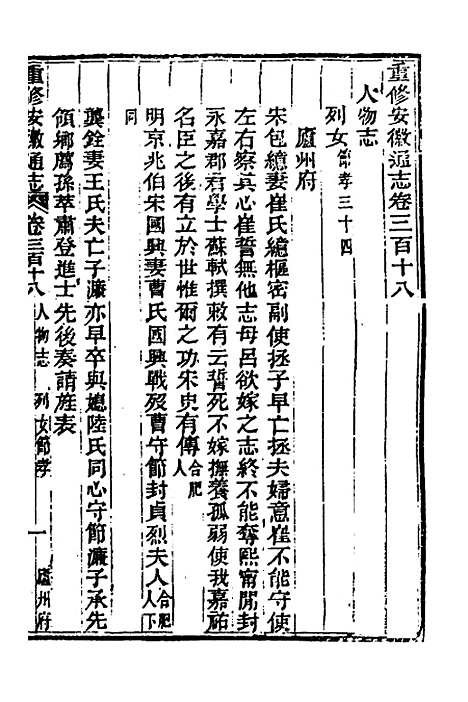 重修安徽通志卷三百十八
人物志
列女節孝三十四
廬州府
宋包繶妻崔氏繶樞密副使拯子早亡拯夫婦意崔不能守使
左右察其心崔誓無他志母呂欲嫁之志終不能奪熙甯開封
永嘉郡君學士蘇軾撰敕有云誓死不嫁撫養孤弱使我嘉祐
名臣之後有立於世惟爾之功宋史有傳合肥人
明京兆伯宋國興妻曹氏國興戰歿曹守節封貞烈夫人合肥人下
同
龔銓妻王氏夫亡子濂亦早卒與媳陸氏同心守節濂子承先
領鄉薦孫萃肅登進士先後奏請旌表
重修安徽通志 卷三百十八 人物志 列女節孝 一 廬州府